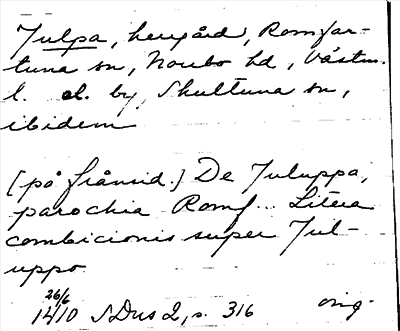 Julpa, herrgård, Romfar-
tuna sn, Norrbo hd, Västm.
l. el. by, Skultuna sn,
ibidem
[på frånsid.] De Juluppa,
parochia Romf... Litera
combicionis super Jul-
uppo
26/6
14/10 SDns 2, s. 316 orig.